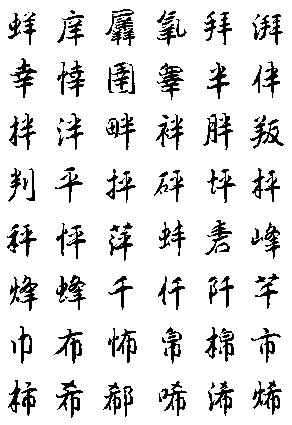 蛘 庠 羼 氧 拜 湃
幸 悻 圉 睾 半 伴
拌 泮 畔 袢 胖 叛
判 平 抨 砰 坪 枰
秤 怦 萍 蚌 砉 峰
烽 蜂 千 仟 阡 芊
巾 布 怖 帛 棉 市
柿 希 郗 唏 浠 烯